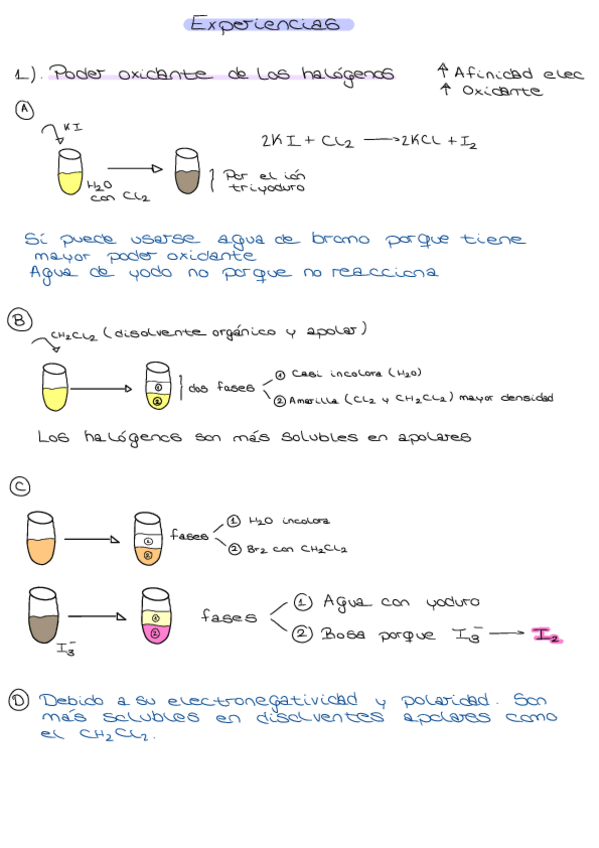 Experiencias
1). Poder oxidante de los halógenos
↑ Afinidad elec
↑ Oxidante
A
KI
H2O
con Cl2
Por el ión
triyoduro
2KI + Cl2 → 2KCl + I2
Sí puede usarse agua de bromo porque tiene
mayor poder oxidante
Agua de yodo no porque no reacciona
B
CH2Cl2 (disolvente orgánico y apolar)
1
2
dos fases
1 Casi incolora (H2O)
2 Amarilla (Cl2 y CH2Cl2) mayor densidad
Los halógenos son más solubles en apolares
C
1
2
fases
1 H2O incolora
2 Br2 con CH2Cl2
I3-
1
2
fases
1 Agua con yoduro
2 Bosa porque I3- → I2
D Debido a su electronegatividad y polaridad. Son
más solubles en disolventes apolares como
el CH2Cl2.